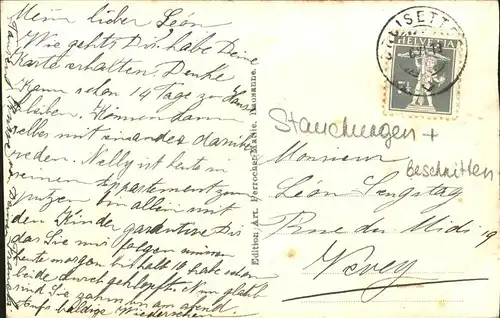 Mein lieber Léon
Wie gehts Dir, habe Deine
Karte erhalten. Danke
Kann schon 14 Tage zu Haus
bleiben. Können dann
selber mit einander darüber
reden. Nelly ist heute in
seinem Appartement zum
putzen bin allein mit
den Kinder garantire Dir
das Sie mir folgen müssen
heute morgen bis halb 10 habe schon
beide durchgeklopft. Nun glaub
sind Sie zahm am abend.
Aufs baldige Wiedersehen
Edition Art. Perrochet-Matile, Lausanne.
HELVETIA
Stauchungen +
beschnitten
Monsieur
Léon Sengstag
Rue du Midi 19
Vevey